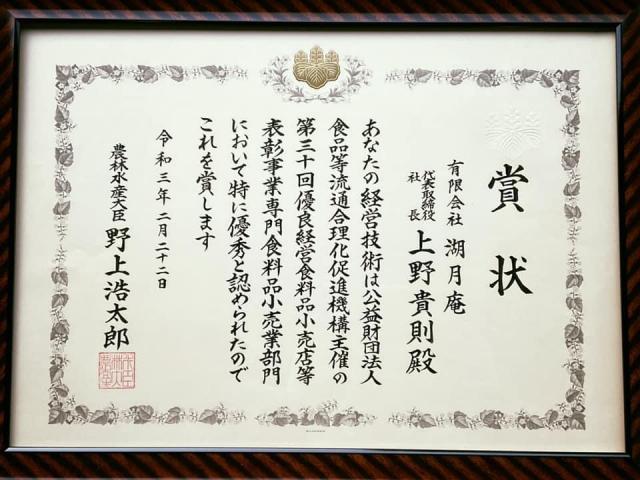 賞状
有限会社 湖月庵
代表取締役
社長
上野貴則殿
あなたの経営技術は公益財団法人
食品等流通合理化促進機構主催の
第三十回優良経営食料品小売店等
表彰事業専門食料品小売業部門
において特に優秀と認められたので
これを賞します
令和三年二月二十二日
農林水産大臣 野上浩太郎